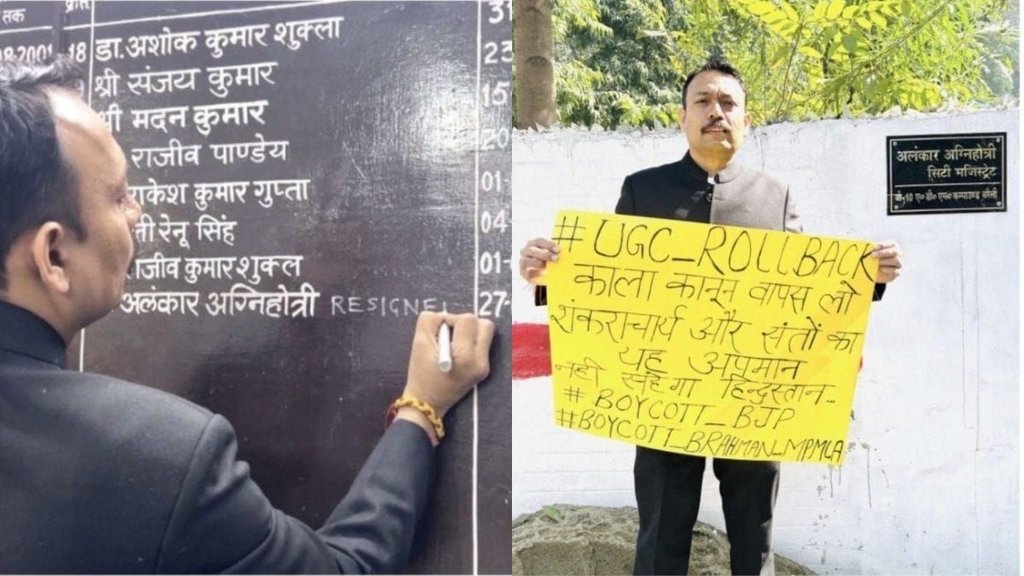 तक
31
08-2001
18
डा.अशोक कुमार शुक्ला
23
श्री संजय कुमार
15
मदन कुमार
20
राजीव पाण्डेय
राकेश कुमार गुप्ता
01-
रेनू सिंह
04-
राजीव कुमार शुक्ल
01-
अलंकार अग्निहोत्री RESIGNE
27-
अलंकार अग्निहोत्री
सिटी मजिस्ट्रेट
#UGC_ROLLBACK
काला कानून वापस लो
शंकराचार्य और संतों का
यह अपमान
नहीं सहेगा हिन्दुस्तान..
#BOYCOTT_BJP
#BOYCOTT_BRAHMAN_MPMLA